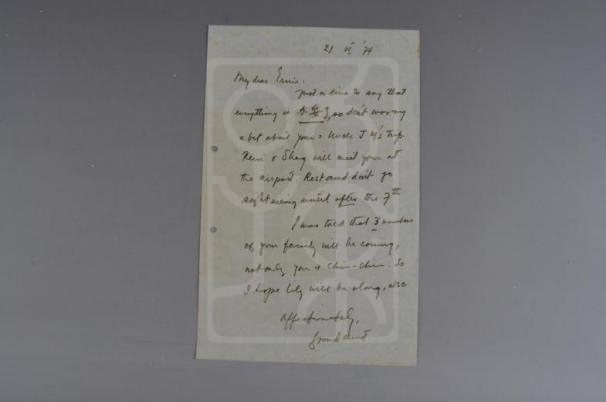 21 VI '74
My dear Ernie,
Just a line to say that
everything is so don't worry
a bit about your & Uncle T Y's trip
& Shag will meet you at
the airport. Rest and don't go
sightseeing until after the 7th
I was told that 3 members
of your family will be coming,
not only you & Chin-Chin. So
I hope Lily will be along, also
Affectionately,
Grand Aunt